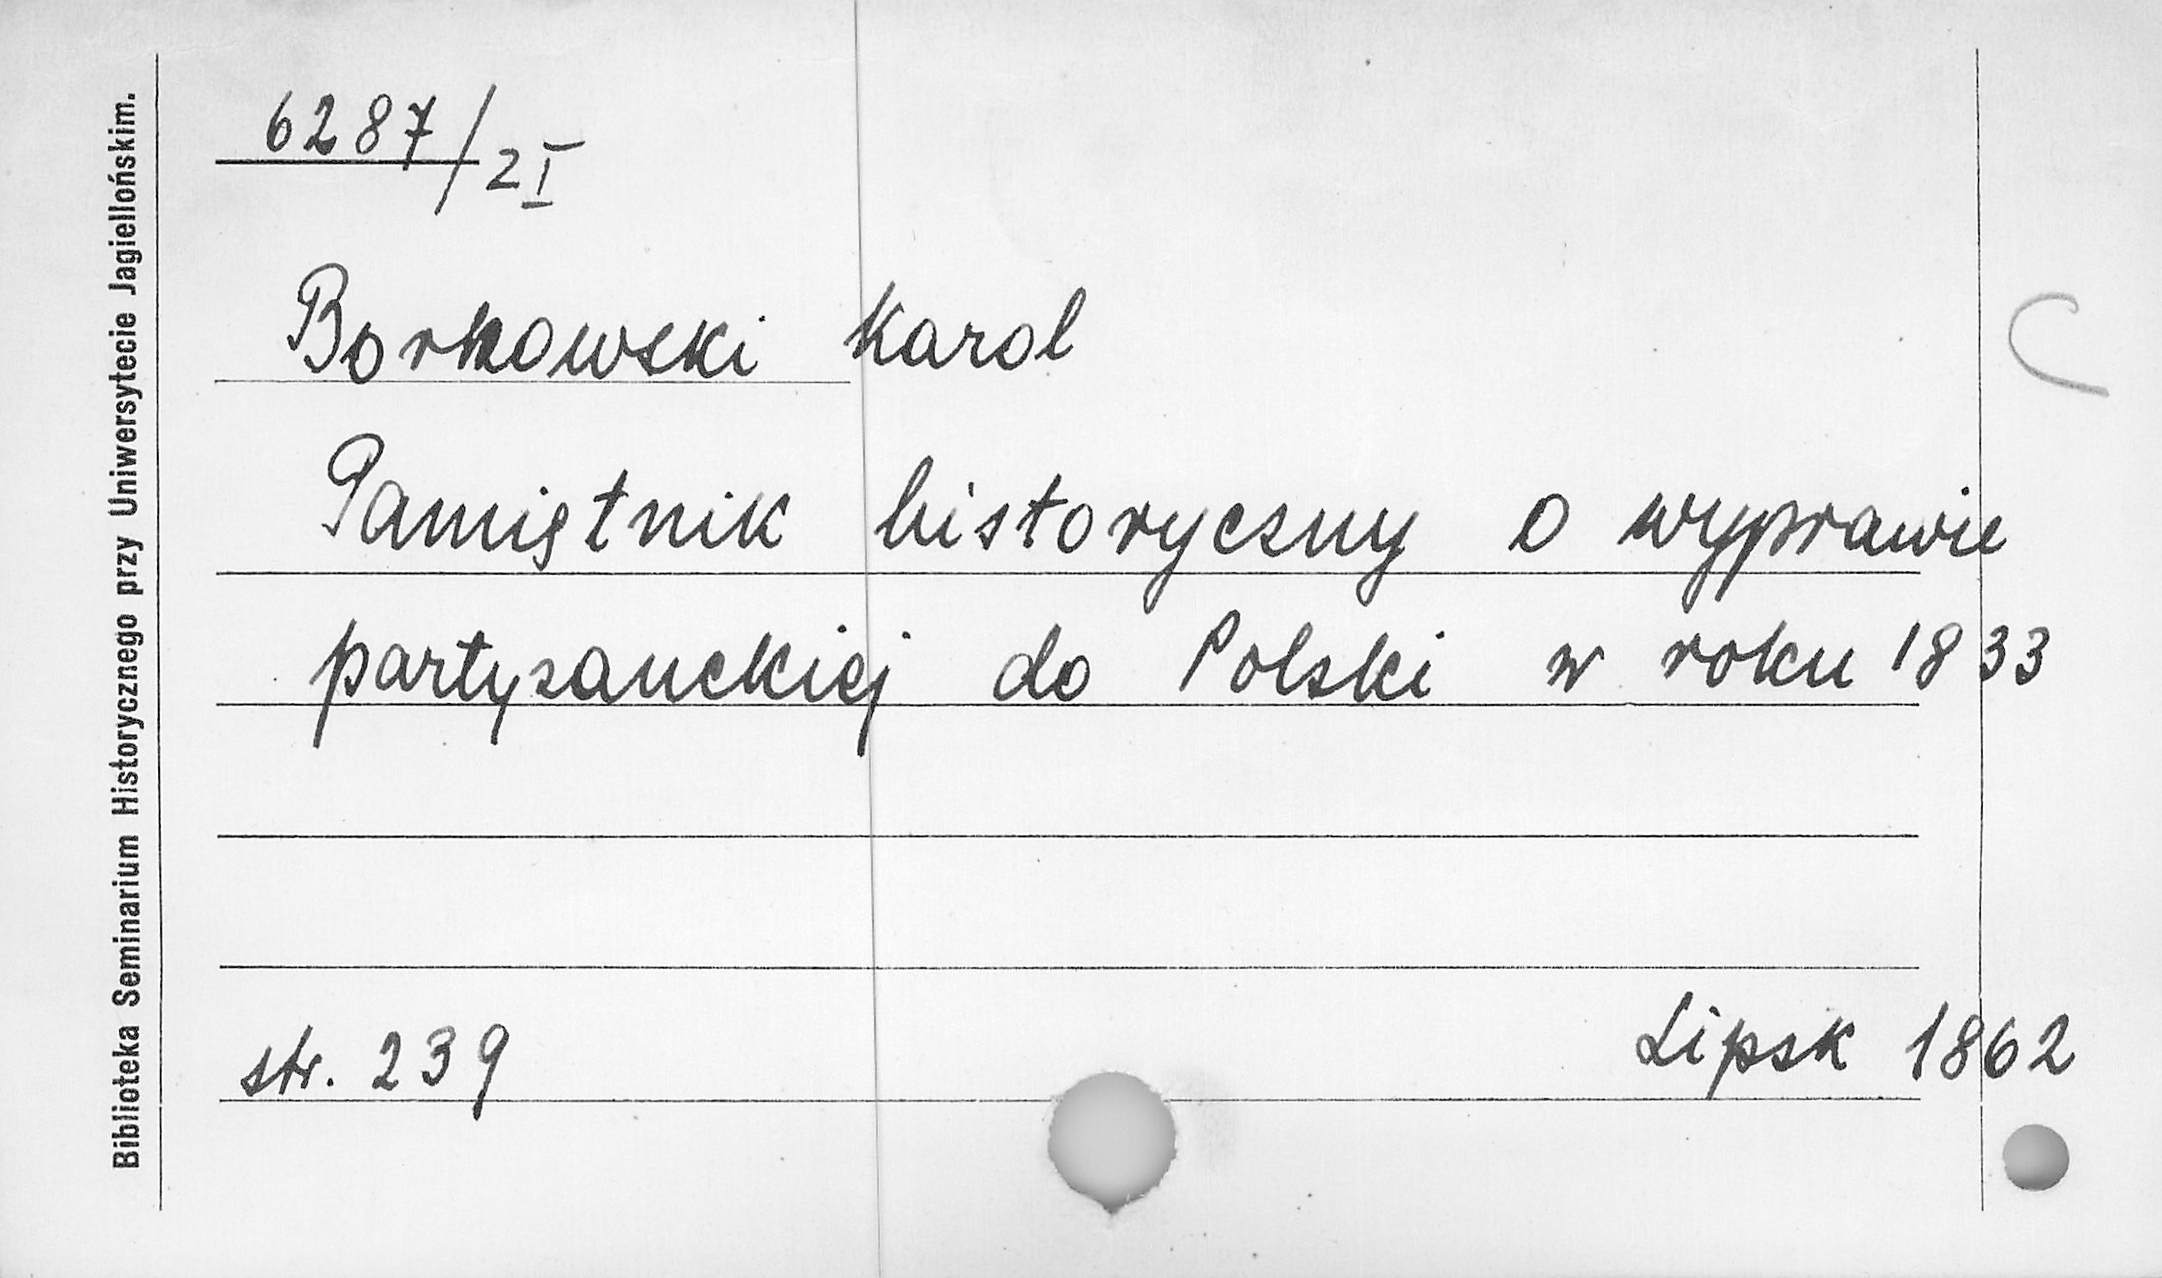 Biblioteka Seminarium Historycznego przy Uniwersytecie Jagiellońskim.
6287/2I
Borkowski Karol
Pamiętnik historyczny o wyprawie
partyzanckiej do Polski w roku 1833
str. 239
Lipsk 1862